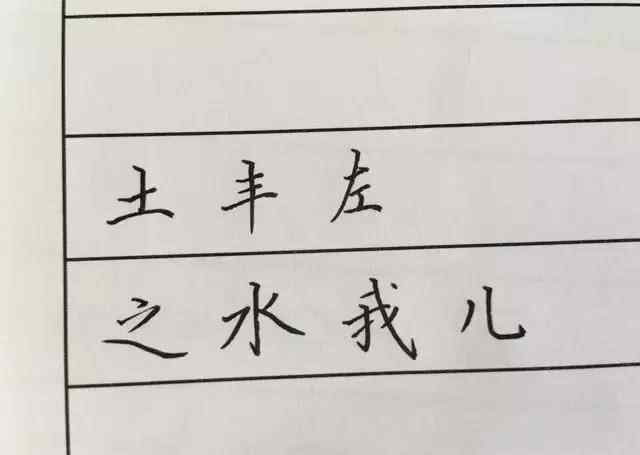 土 丰 左
之 水 我 儿